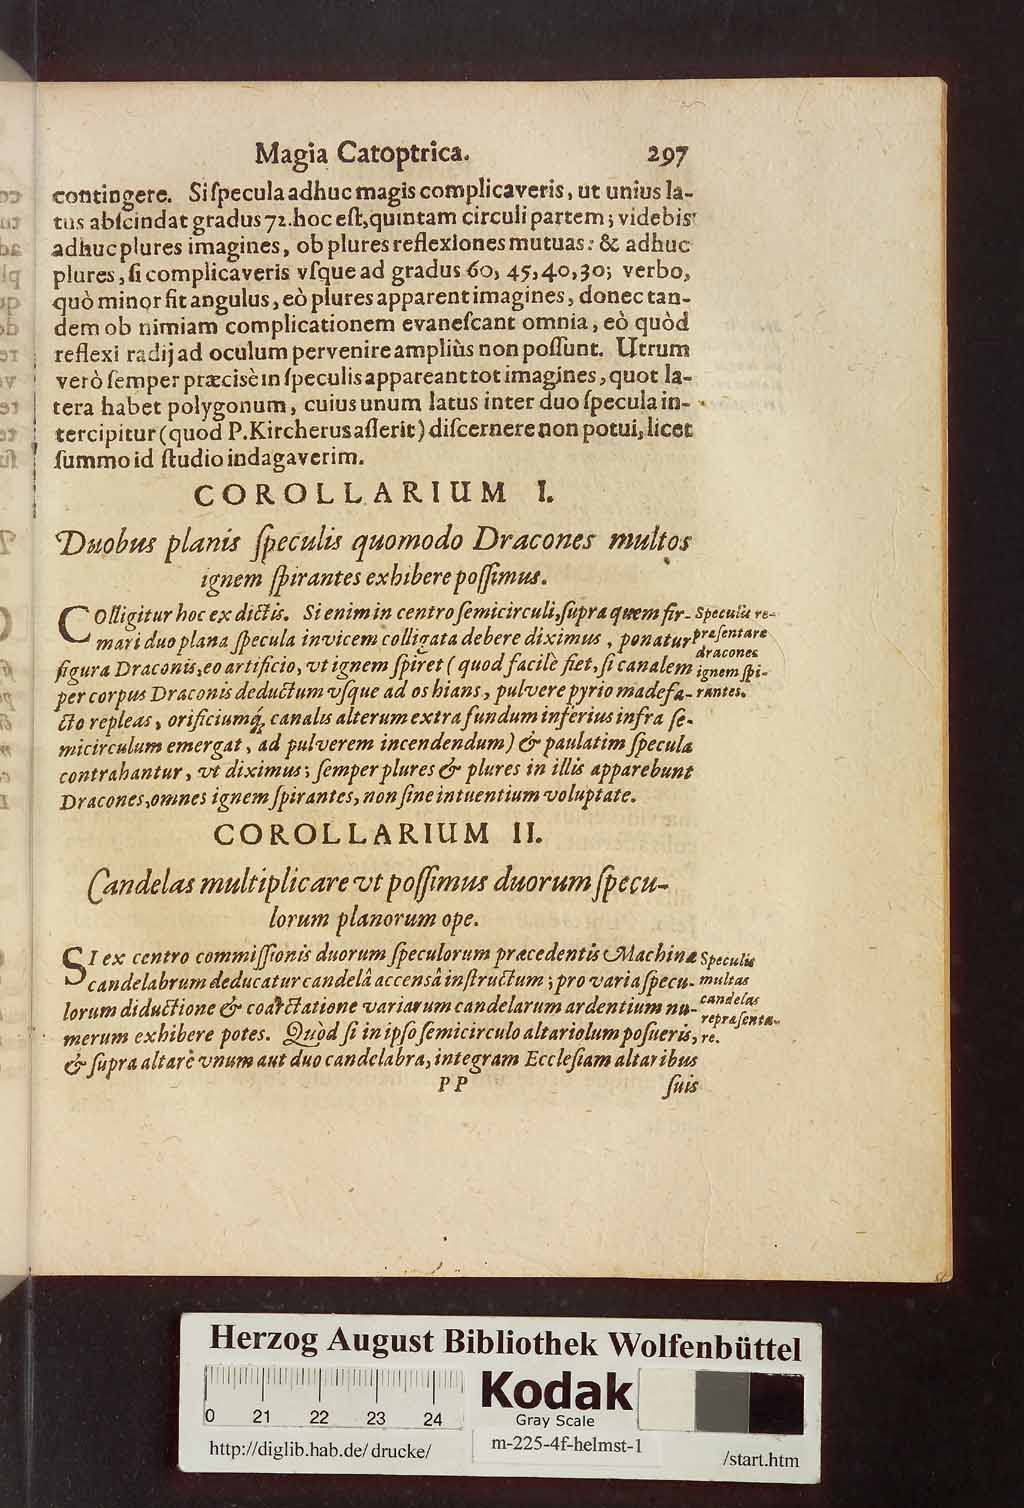 Magia Catoptrica. 297
contingere. Si ſpecula adhuc magis complicaveris, ut unius la-
tus abſcindat gradus 72. hoc eſt, quintam circuli partem; videbis
adhuc plures imagines, ob plures reflexiones mutuas: & adhuc
plures, ſi complicaveris vſque ad gradus 60, 45, 40, 30; verbo,
quò minor fit angulus, eò plures apparent imagines, donec tan-
dem ob nimiam complicationem evaneſcant omnia, eò quòd
reflexi radij ad oculum pervenire ampliùs non poſſunt. Utrum
verò ſemper præcisè in ſpeculis appareant tot imagines, quot la-
tera habet polygonum, cuius unum latus inter duo ſpecula in-
tercipitur (quod P. Kircherus aſſerit) diſcernere non potui, licet
ſummo id ſtudio indagaverim.
COROLLARIUM I.
Duobus planis ſpeculis quomodo Dracones multos
ignem ſpirantes exhibere poſſimus.
COlligitur hoc ex dictis. Si enim in centro ſemicirculi, ſupra quem fir-
mari duo plana ſpecula invicem colligata debere diximus, ponatur
figura Draconis, eo artificio, vt ignem ſpiret (quod facilè fiet, ſi canalem
per corpus Draconis deductum vſque ad os hians, pulvere pyrio madefa-
cto repleas, orificiumq́; canalis alterum extra fundum inferius infra ſe-
micirculum emergat, ad pulverem incendendum) & paulatim ſpecula
contrahantur, vt diximus; ſemper plures & plures in illis apparebunt
Dracones, omnes ignem ſpirantes, non ſine intuentium voluptate.
Speculis re-
præſentare
dracones
ignem ſpi-
rantes.
COROLLARIUM II.
Candelas multiplicare vt poſſimus duorum ſpecu-
lorum planorum ope.
SI ex centro commiſſionis duorum ſpeculorum præcedentis Machinæ
candelabrum deducatur candelâ accensâ inſtructum; pro varia ſpecu-
lorum diductione & coarctatione variarum candelarum ardentium nu-
merum exhibere potes. Quòd ſi in ipſo ſemicirculo altariolum poſueris,
& ſupra altare vnum aut duo candelabra, integram Eccleſiam altaribus
Speculis
multas
candelas
repræſenta-
re.
PP ſuis
Herzog August Bibliothek Wolfenbüttel
0 21 22 23 24
Kodak
Gray Scale
http://diglib.hab.de/ drucke/
m-225-4f-helmst-1
/start.htm